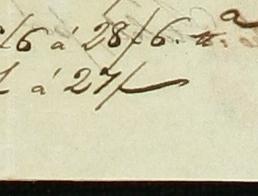 /6 á 28/6. a
á 27/